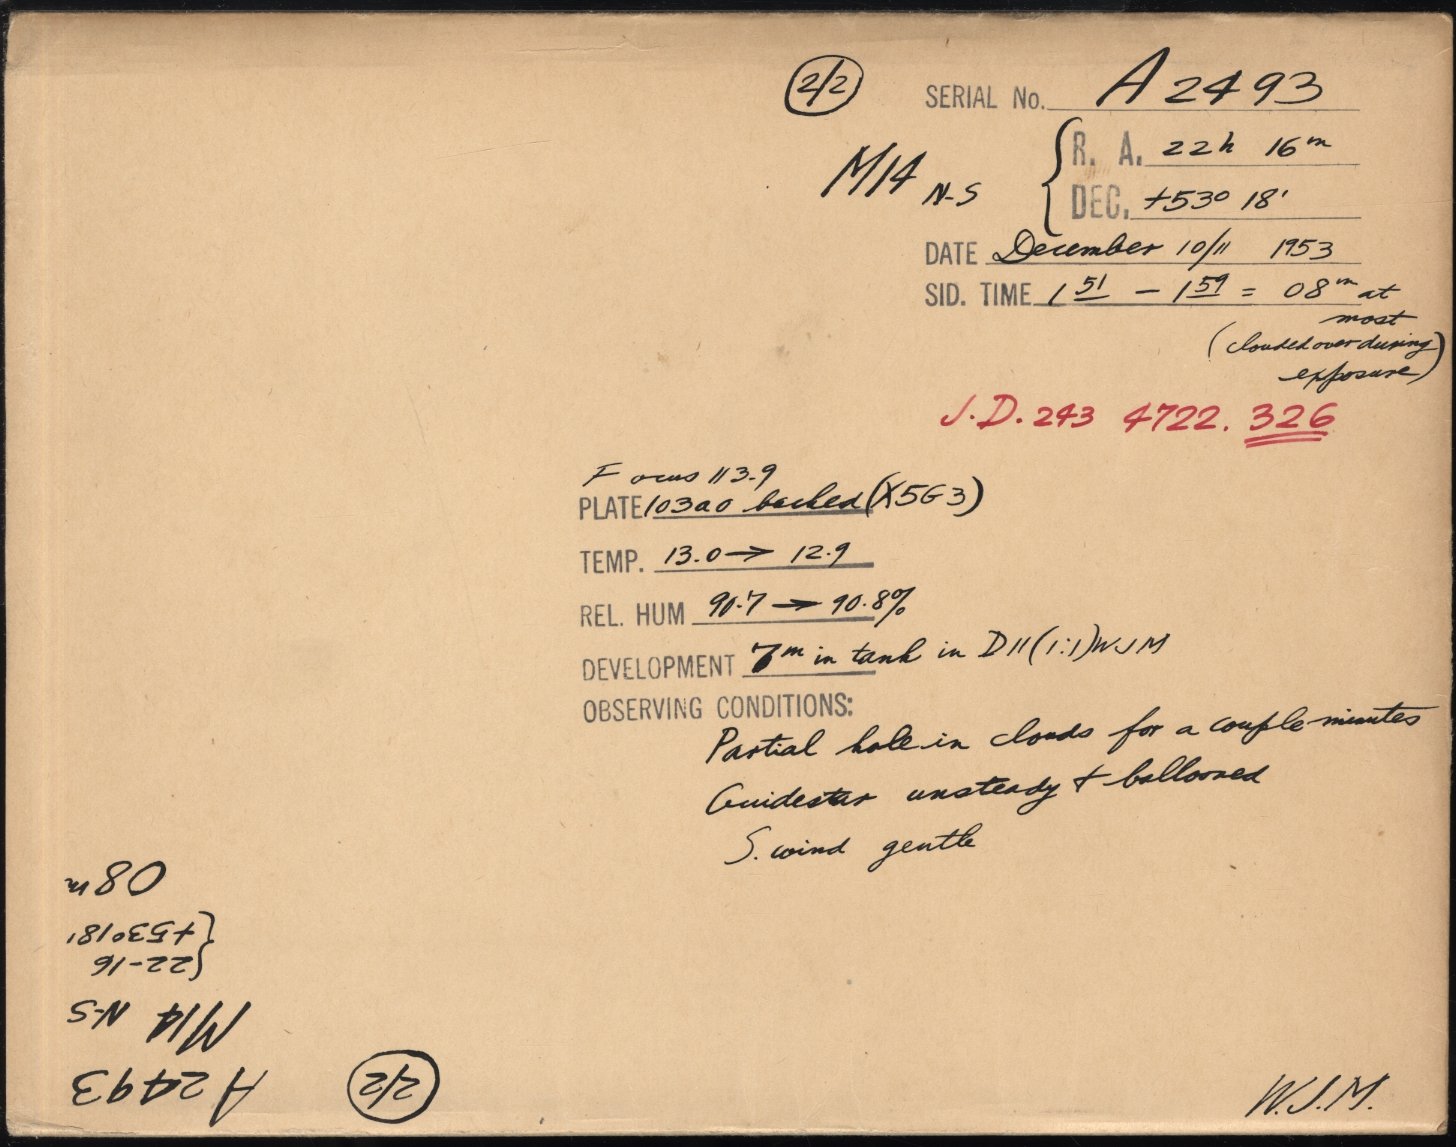 2/2
SERIAL No. A 2493
M14 N-S
R. A. 22h 16m
DEC. +53° 18'
DATE December 10/11 1953
SID. TIME 1 51 - 1 59 = 08m at
most
(clouded over during
exposure)
J.D. 243 4722.326
Focus 113.9
PLATE 103a0 backed (X5G3)
TEMP. 13.0 → 12.9
REL. HUM 90.7 → 90.8%
DEVELOPMENT 7m in tank in D11 (1:1) WJM
OBSERVING CONDITIONS:
Partial hole in clouds for a couple minutes
Guidestar unsteady & ballooned
S. wind gentle
W.J.M.
2/2
A 2493
M14 N-S
{22-16
{+53°18'
08m